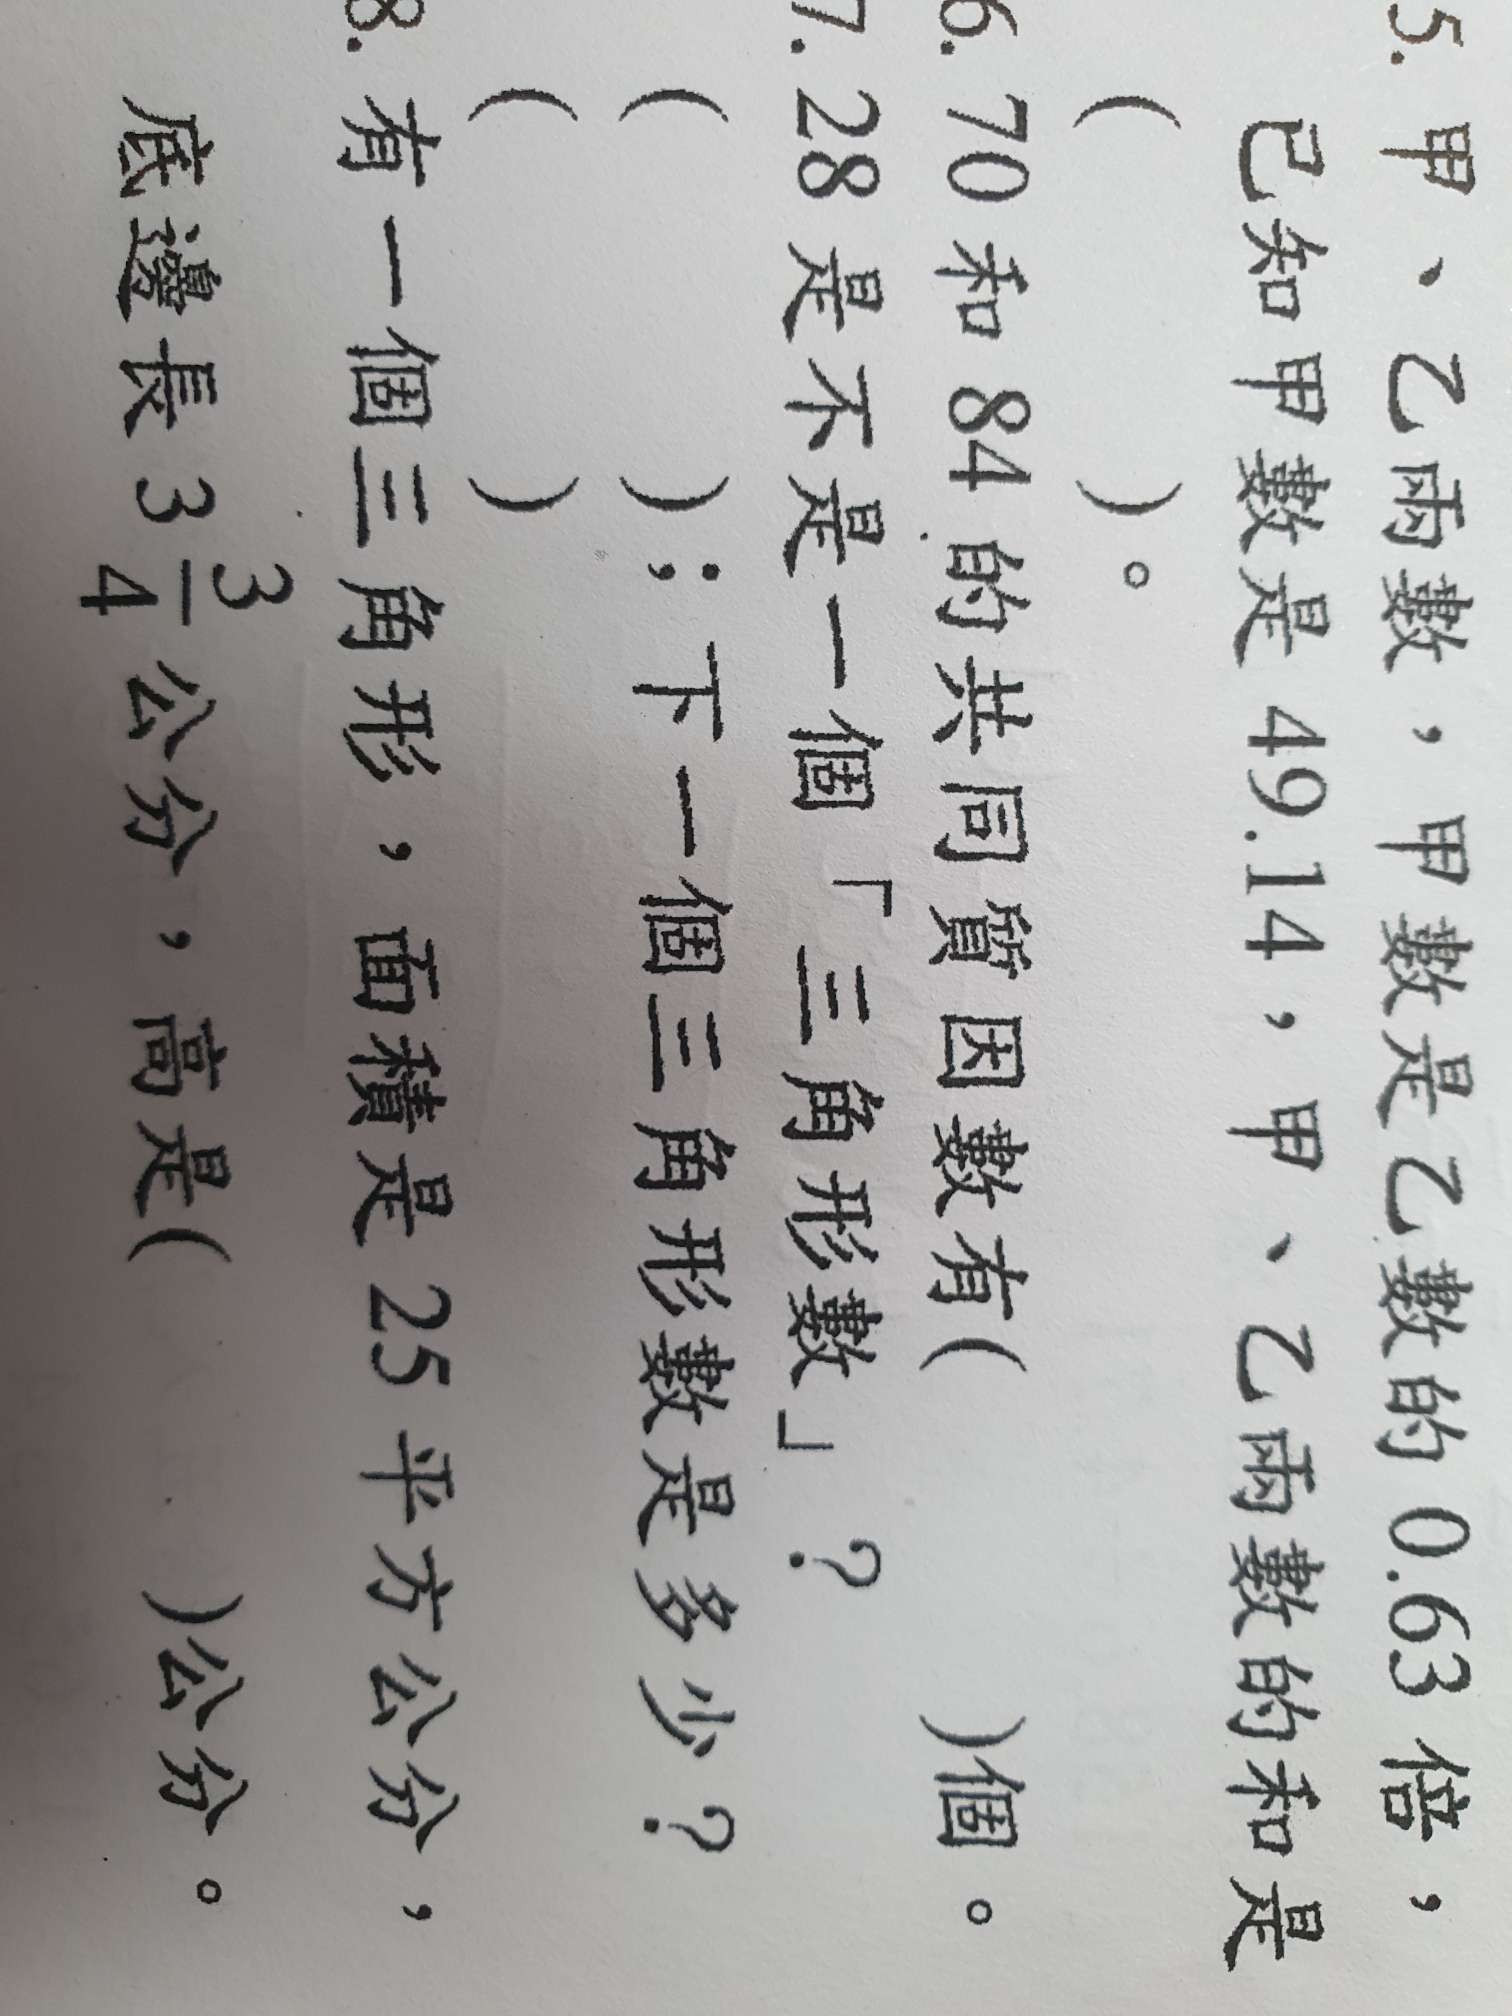 5. 甲、乙兩數，甲數是乙數的 0.63 倍，
已知甲數是 49.14，甲、乙兩數的和是
(　　　)。
6. 70 和 84 的共同質因數有(　　　)個。
7. 28 是不是一個「三角形數」？
(　　　)；下一個三角形數是多少？
(　　　)
8. 有一個三角形，面積是 25 平方公分，
底邊長 3 3/4 公分，高是(　　　)公分。